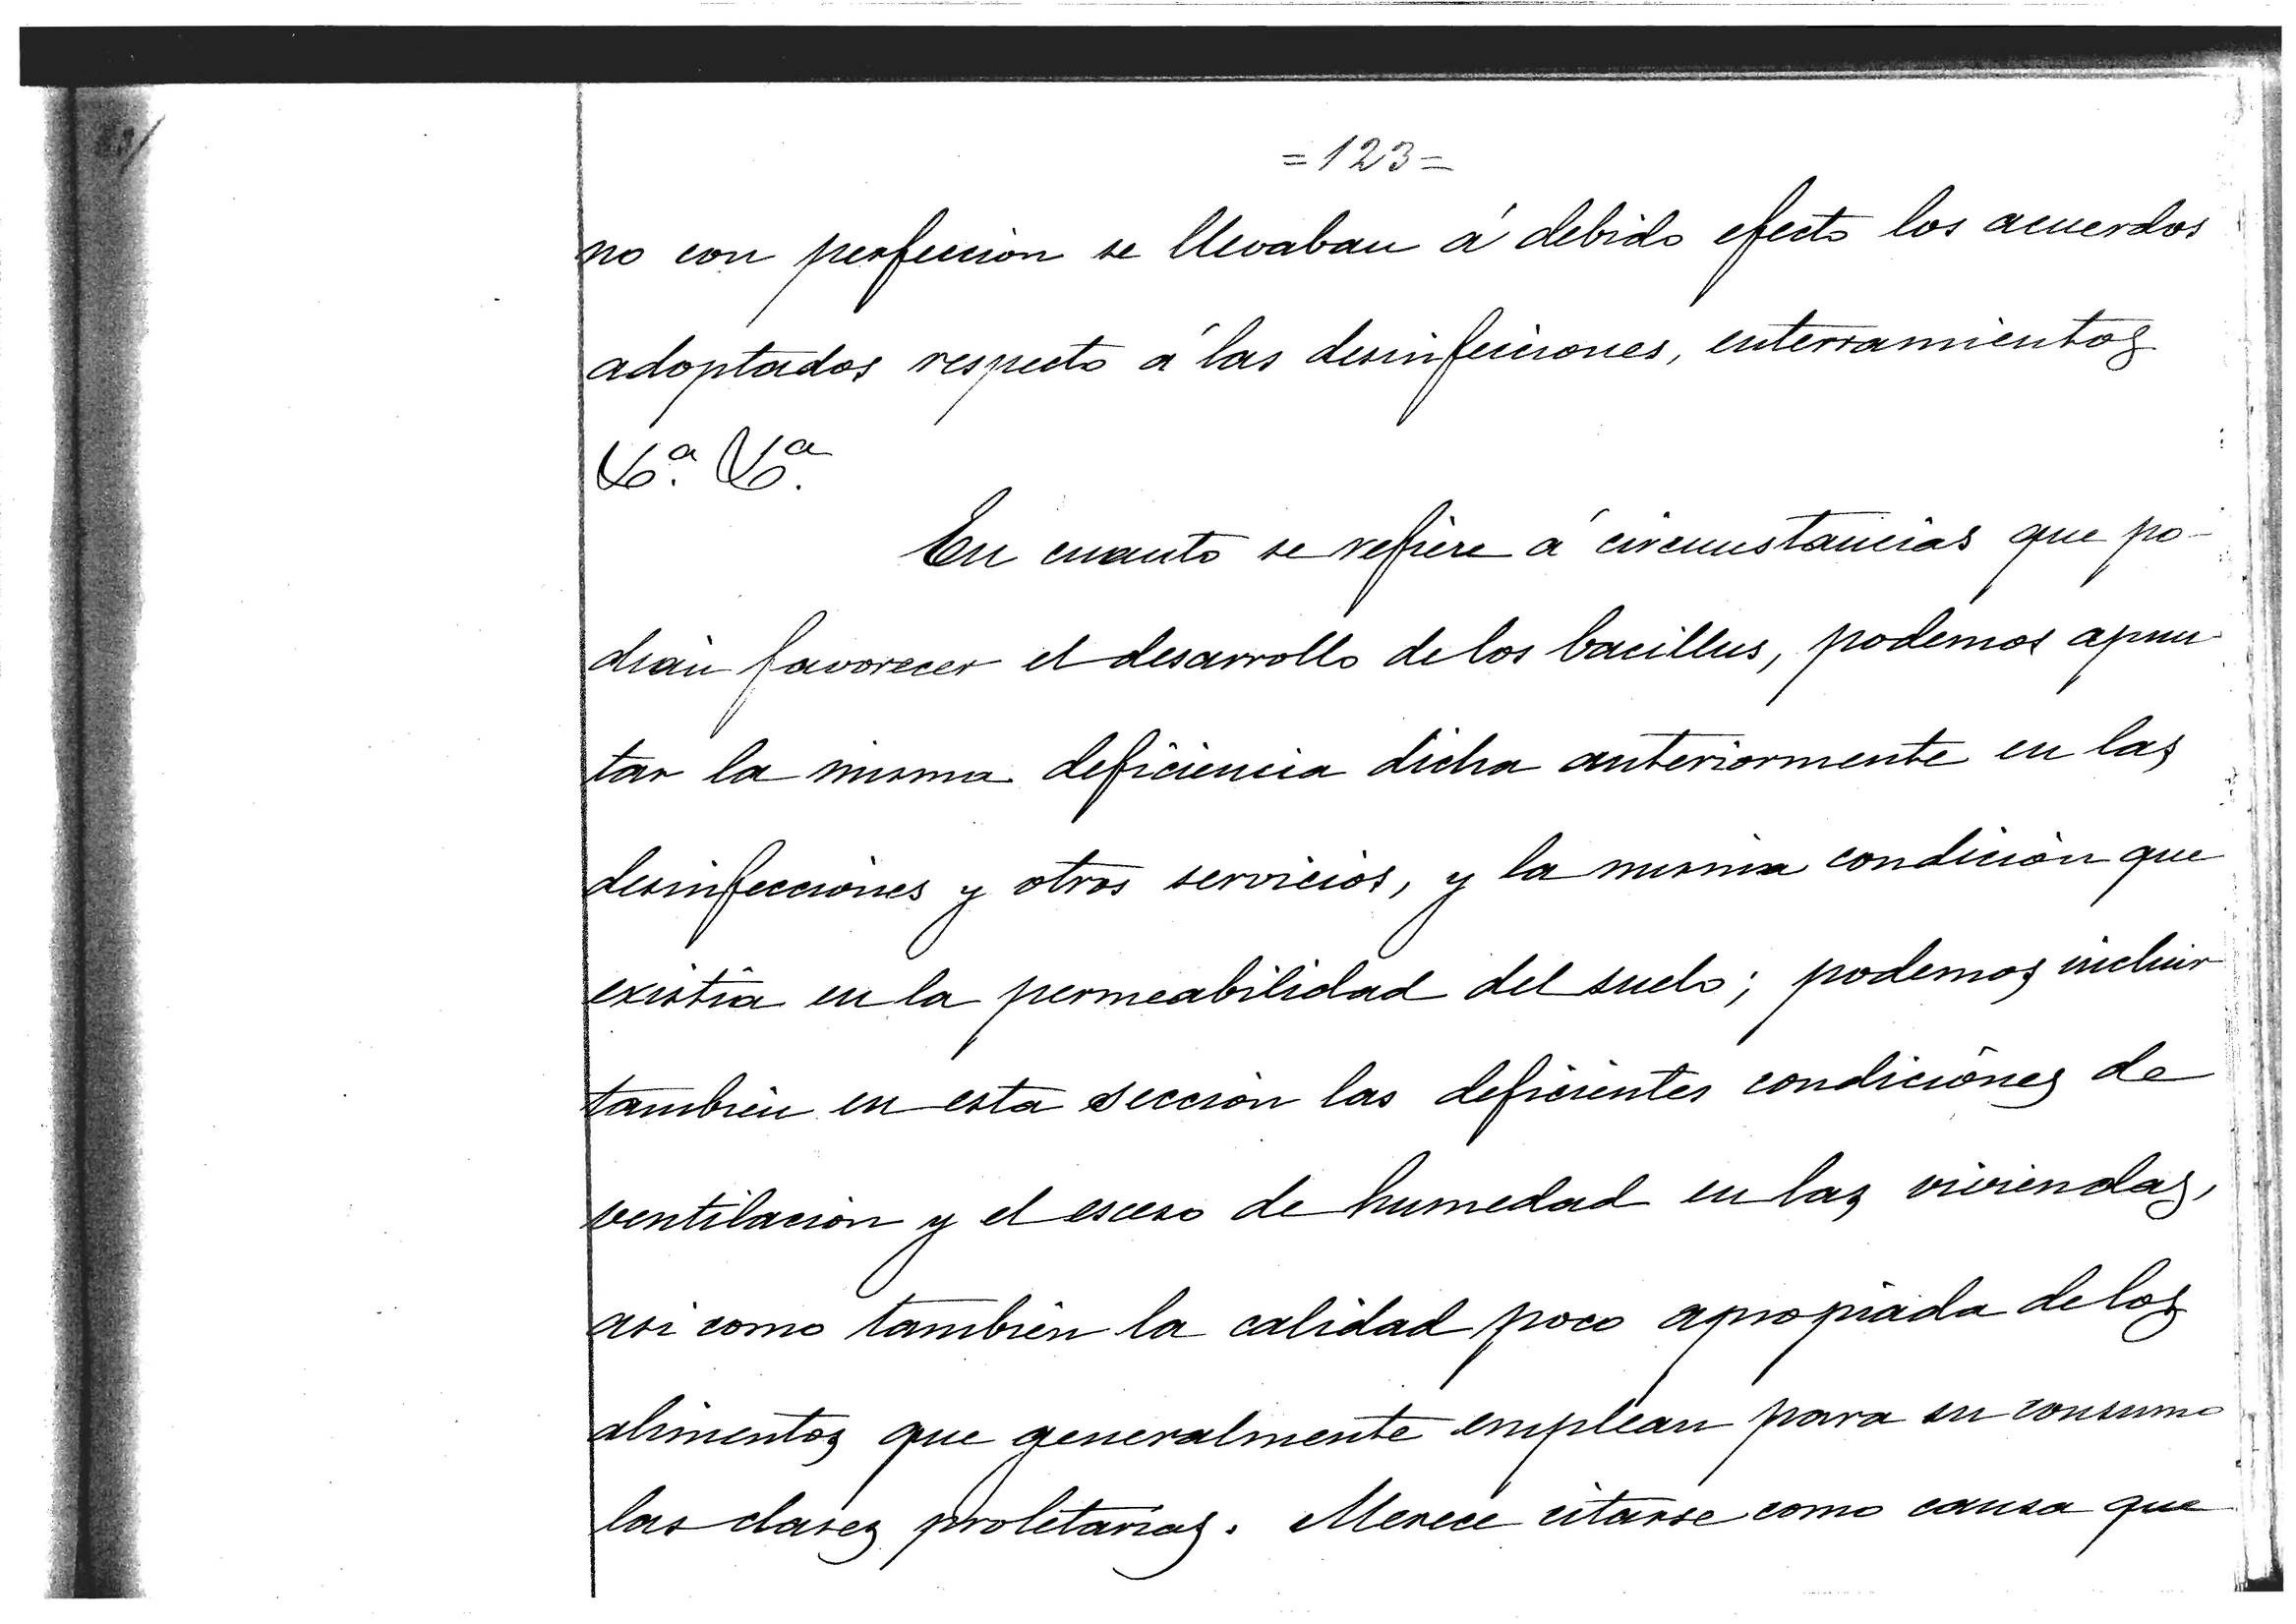 =123=
no con perfeccion se llevaban á debido efecto los acuerdos
adoptados respecto á las desinfecciones, enterramientos
&ª. &ª.
En cuanto se refiere á circunstancias que po-
drian favorecer el desarrollo de los bacillus, podemos apun
tar la misma deficiencia dicha anteriormente en las
desinfecciones y otros servicios, y la misma condición que
existia en la permeabilidad del suelo; podemos incluir
tambien en esta seccion las deficientes condiciones de
ventilacion y el esceso de humedad en las viviendas,
asi como tambien la calidad poco apropiada de los
alimentos que generalmente emplean para su consumo
las clases proletarias. Merece citarse como causa que